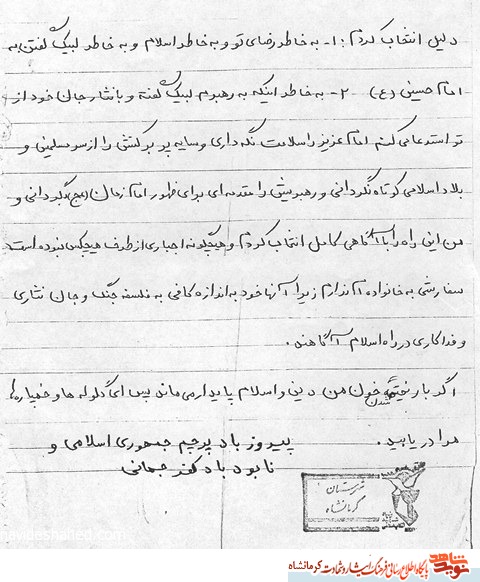 دلیل انتخاب کردم : ۱- به خاطر رضای تو و به خاطر اسلام و به خاطر لبیک گفتن به
امام حسین (ع) ۲- به خاطر اینکه به رهبرم لبیک گفته و با نثار جان خود از
تو استدعا می کنم امام عزیز را سلامت نگه داری و سایه پر برکتش را از سر مسلمین و
بلاد اسلامی کوتاه نگردانی و رهبریش را مقدمه ای برای ظهور امام زمان (عج) گردانی و
من این راه را با آگاهی کامل انتخاب کردم و هیچگونه اجباری از طرف هیچکس نبوده است
سفارشی به خانواده ام ندارم زیرا آنها خود به اندازه کافی به فلسفه جنگ و جان نثاری
و فداکاری در راه اسلام آگاهند .
اگر با ریخته شدن خون من دین و اسلام پایدار می ماند پس ای گلوله ها و خمپاره ها
مرا دریابید . پیروز باد پرچم جمهوری اسلامی و
نابود باد کفر جهانی
کرمانشاه
navideshahed.com
نوید شاهد پایگاه اطلاع رسانی فرهنگ ایثار و شهادت کرمانشاه